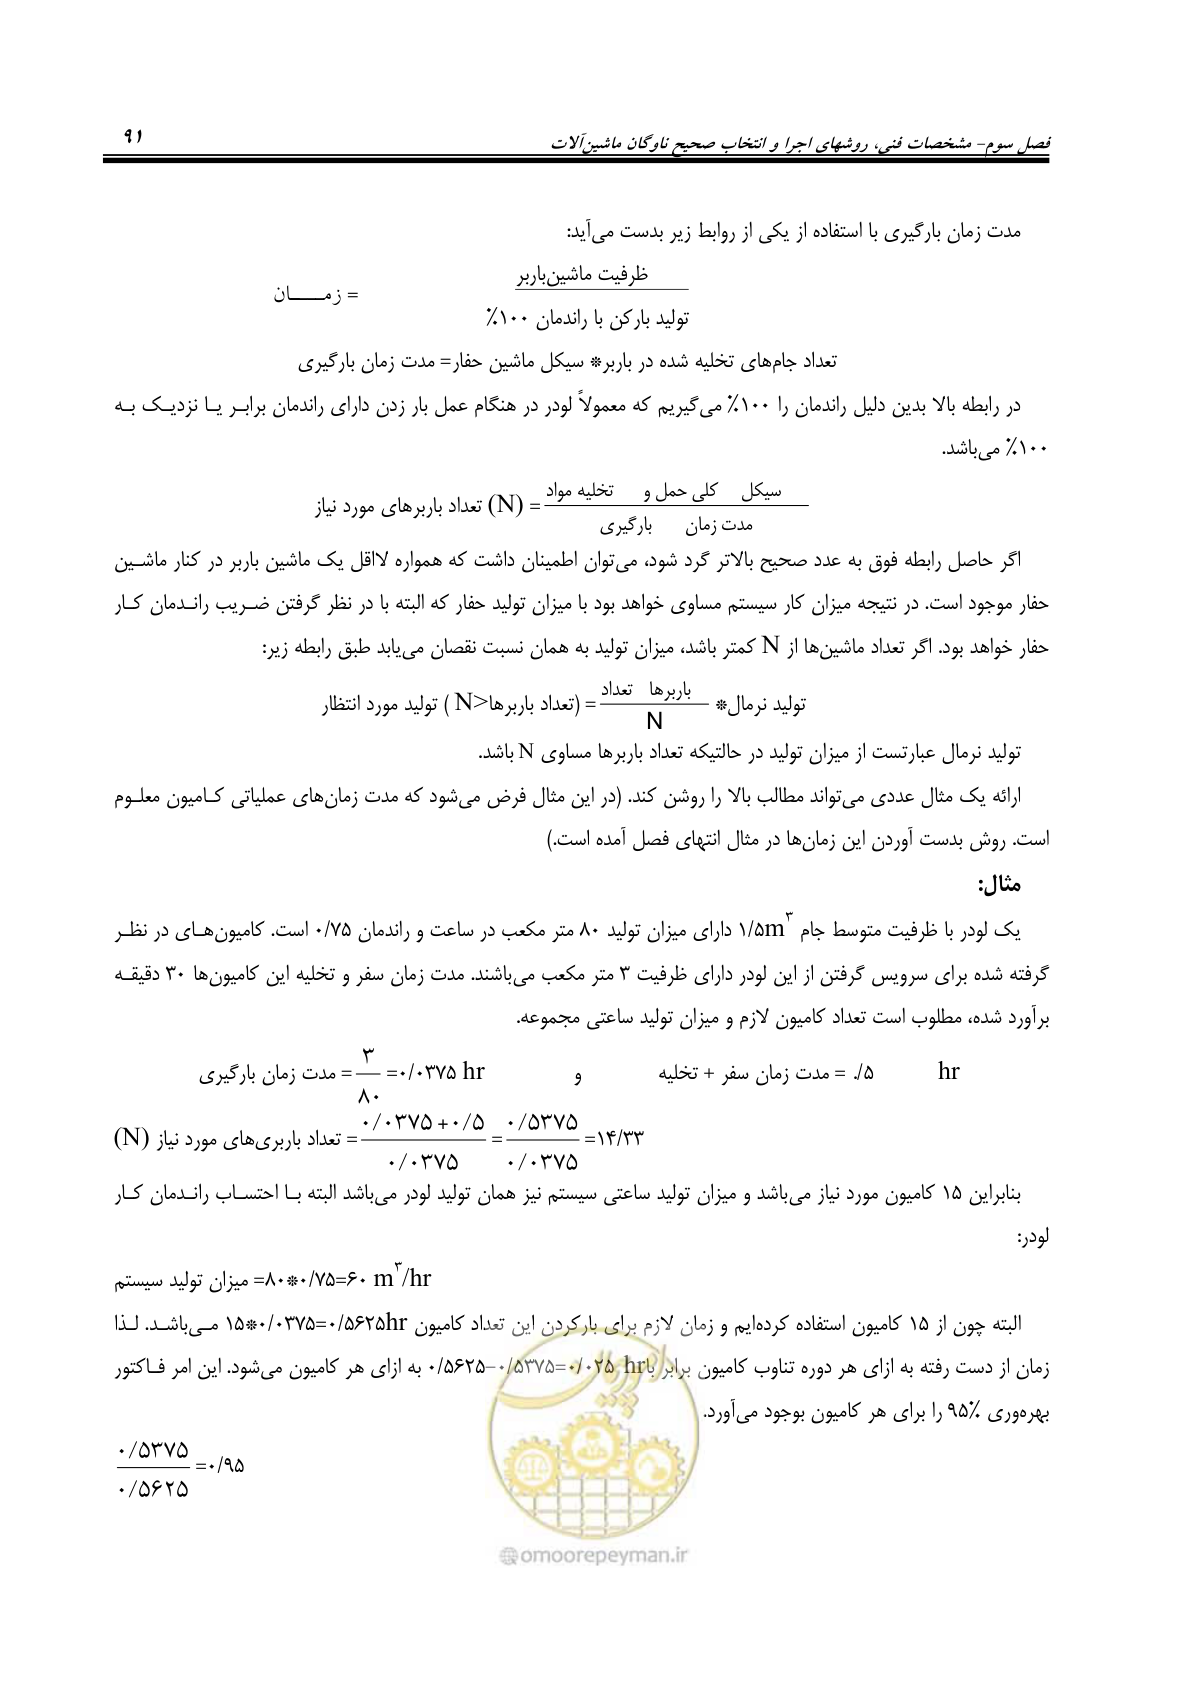 فصل سوم- مشخصات فنی، روشهای اجرا و انتخاب صحیح ناوگان ماشین‌آلات ۹۱
مدت زمان بارگیری با استفاده از یکی از روابط زیر بدست می‌آید:
ظرفیت ماشین‌باربر
= زمـــــان
تولید بارکن با راندمان ۱۰۰٪
تعداد جام‌های تخلیه شده در باربر* سیکل ماشین حفار= مدت زمان بارگیری
در رابطه بالا بدین دلیل راندمان را ۱۰۰٪ می‌گیریم که معمولاً لودر در هنگام عمل بار زدن دارای راندمان برابـر یـا نزدیـک بـه
۱۰۰٪ می‌باشد.
سیکل کلی حمل و تخلیه مواد
= (N) تعداد باربرهای مورد نیاز
مدت زمان بارگیری
اگر حاصل رابطه فوق به عدد صحیح بالاتر گرد شود، می‌توان اطمینان داشت که همواره لااقل یک ماشین باربر در کنار ماشـین
حفار موجود است. در نتیجه میزان کار سیستم مساوی خواهد بود با میزان تولید حفار که البته با در نظر گرفتن ضـریب رانـدمان کـار
حفار خواهد بود. اگر تعداد ماشین‌ها از N کمتر باشد، میزان تولید به همان نسبت نقصان می‌یابد طبق رابطه زیر:
باربرها تعداد
تولید نرمال* = (تعداد باربرها<N ) تولید مورد انتظار
N
تولید نرمال عبارتست از میزان تولید در حالتیکه تعداد باربرها مساوی N باشد.
ارائه یک مثال عددی می‌تواند مطالب بالا را روشن کند. (در این مثال فرض می‌شود که مدت زمان‌های عملیاتی کـامیون معلـوم
است. روش بدست آوردن این زمان‌ها در مثال انتهای فصل آمده است.)
مثال:
یک لودر با ظرفیت متوسط جام ۱/۵m۳ دارای میزان تولید ۸۰ متر مکعب در ساعت و راندمان ۰/۷۵ است. کامیون‌هـای در نظـر
گرفته شده برای سرویس گرفتن از این لودر دارای ظرفیت ۳ متر مکعب می‌باشند. مدت زمان سفر و تخلیه این کامیون‌ها ۳۰ دقیقـه
برآورد شده، مطلوب است تعداد کامیون لازم و میزان تولید ساعتی مجموعه.
hr ۵/. = مدت زمان سفر + تخلیه و ۳/۸۰ =۰/۰۳۷۵ hr = مدت زمان بارگیری
۰/۰۳۷۵+۰/۵ ۰/۵۳۷۵
(N) تعداد باربری‌های مورد نیاز = = =۱۴/۳۳
۰/۰۳۷۵ ۰/۰۳۷۵
بنابراین ۱۵ کامیون مورد نیاز می‌باشد و میزان تولید ساعتی سیستم نیز همان تولید لودر می‌باشد البته بـا احتسـاب رانـدمان کـار
لودر:
میزان تولید سیستم =۸۰*۰/۷۵=۶۰ m۳/hr
البته چون از ۱۵ کامیون استفاده کرده‌ایم و زمان لازم برای بارکردن این تعداد کامیون ۱۵*۰/۰۳۷۵=۰/۵۶۲۵hr مـی‌باشـد. لـذا
زمان از دست رفته به ازای هر دوره تناوب کامیون برابر با ۰/۵۶۲۵-۰/۵۳۷۵=۰/۰۲۵ hr به ازای هر کامیون می‌شود. این امر فـاکتور
بهره‌وری ۹۵٪ را برای هر کامیون بوجود می‌آورد.
۰/۵۳۷۵
=۰/۹۵
۰/۵۶۲۵
امور پیمان
@omoorepeyman.ir